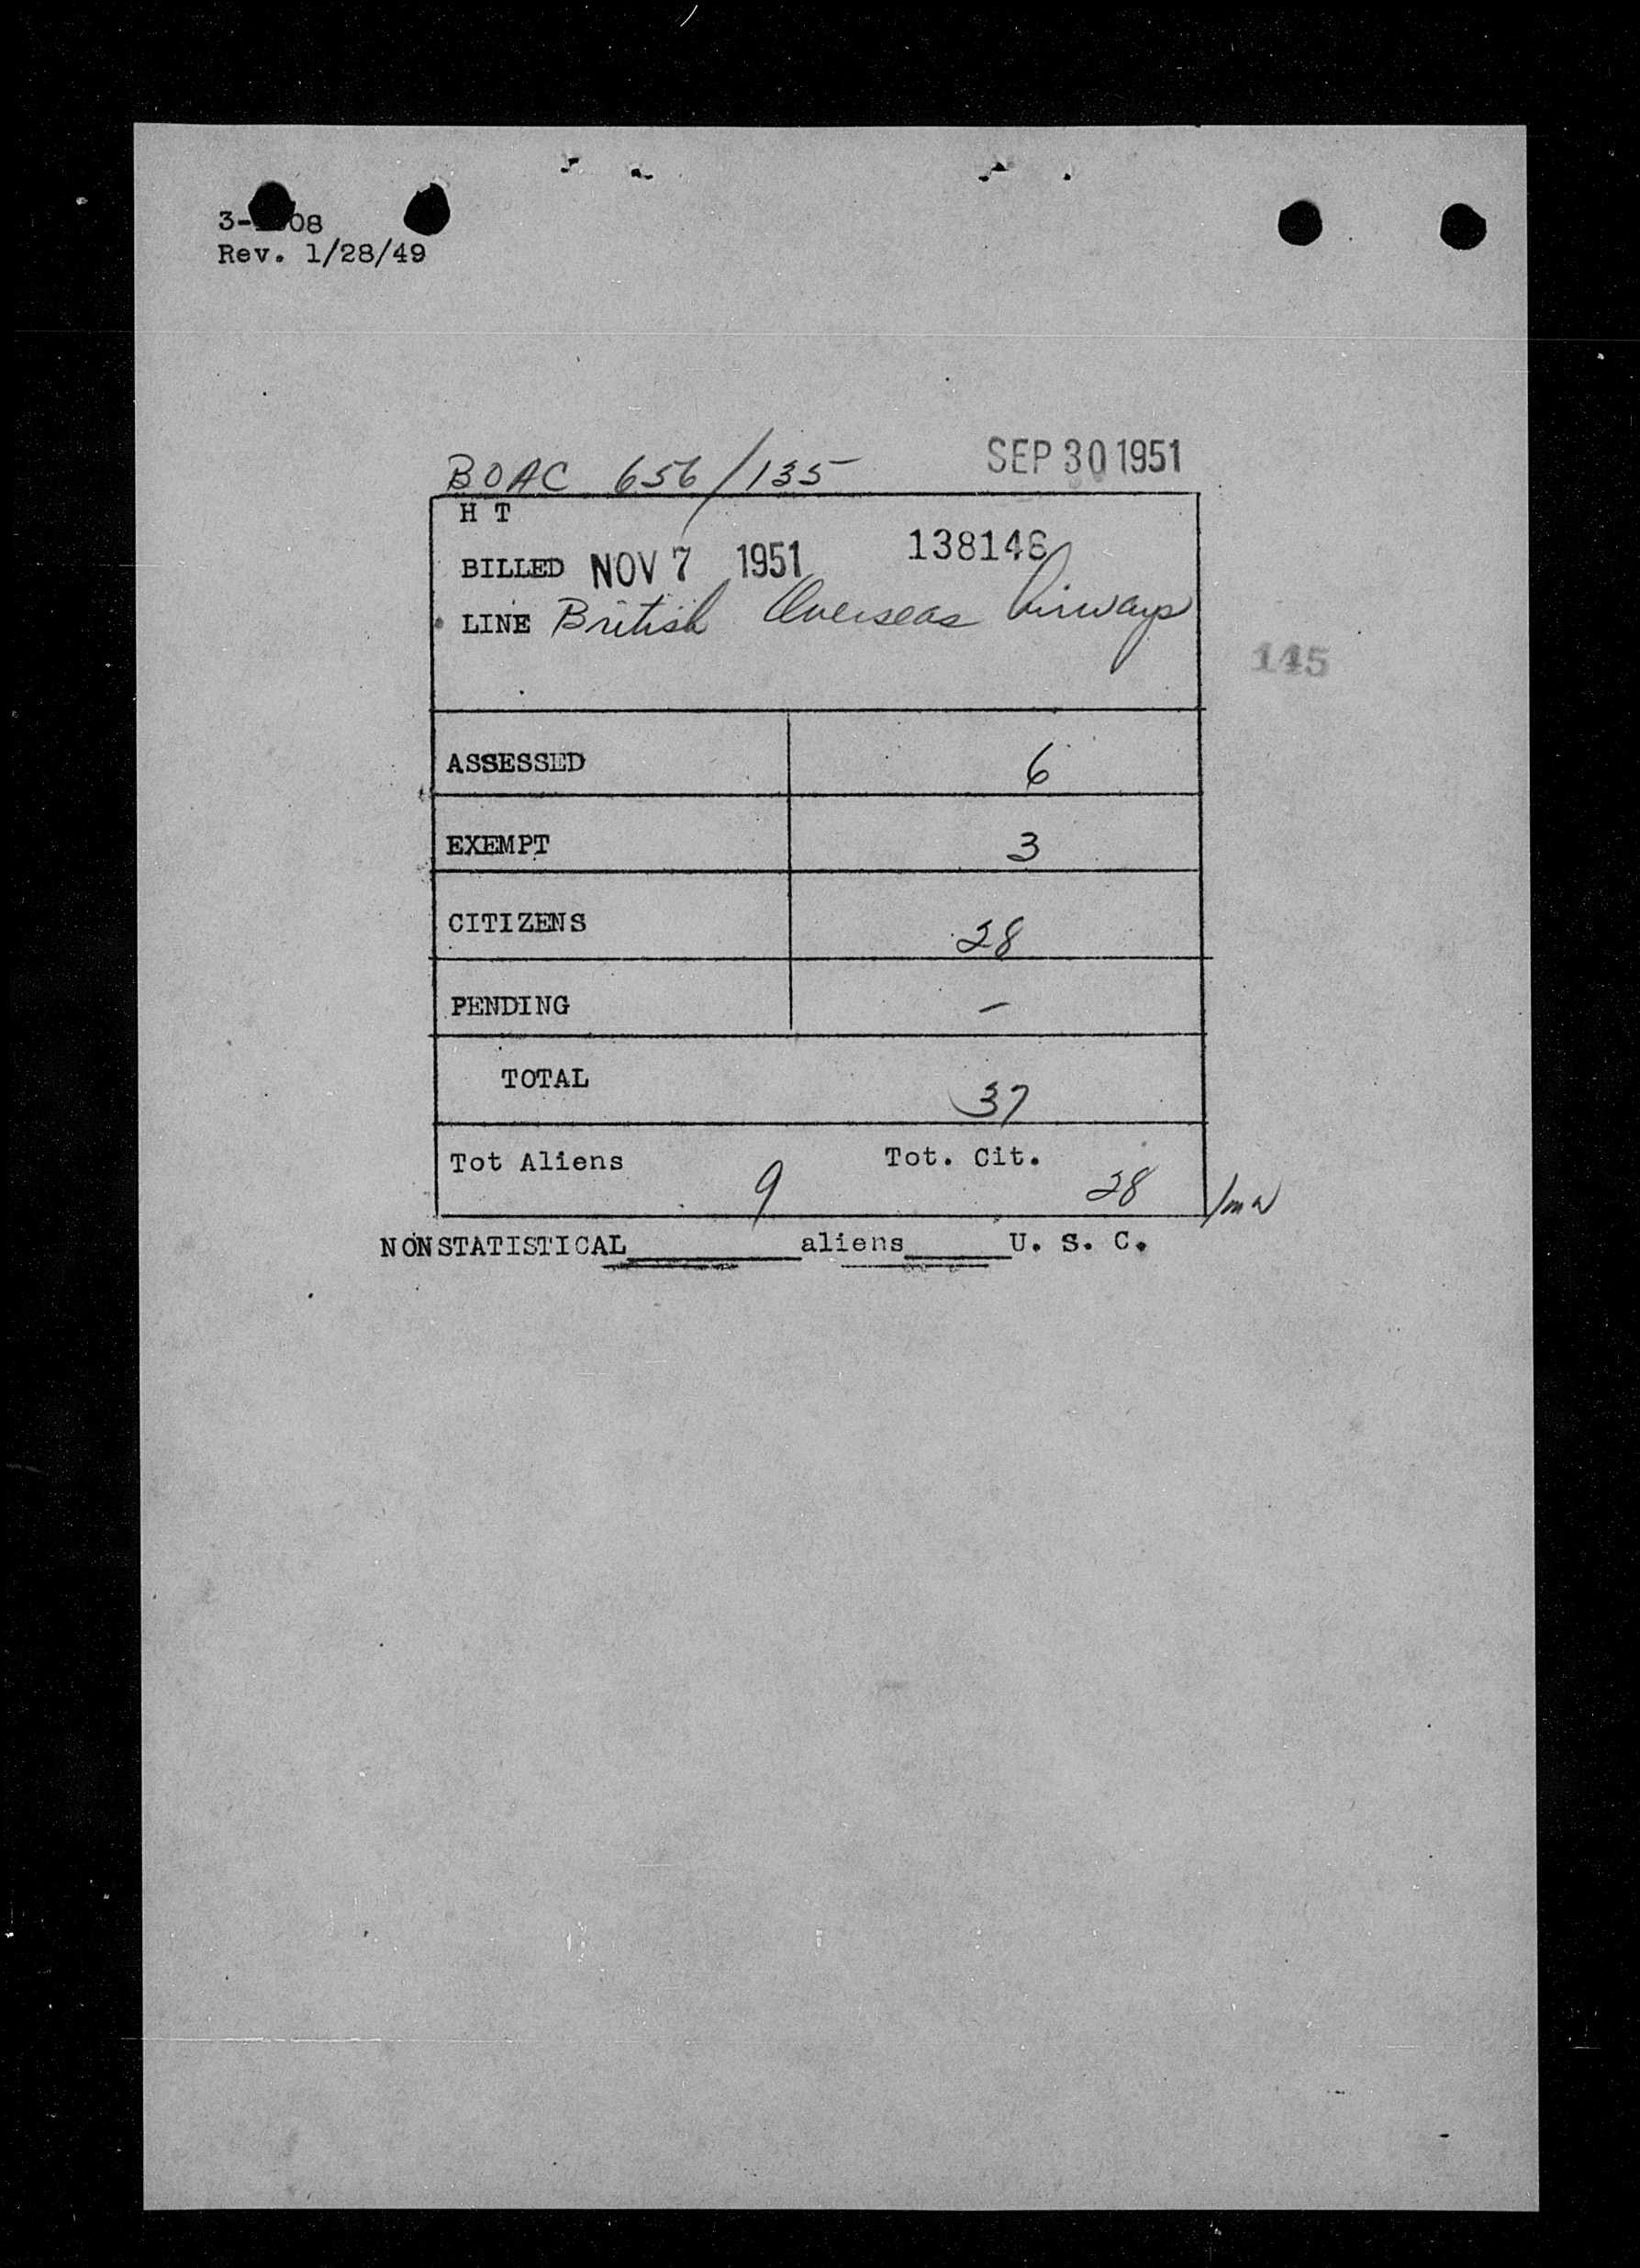 3-  08
Rev. 1/28/49
BOAC 656/135 SEP 30 1951
H T
BILLED NOV 7 1951 138146
LINE British Overseas Airways
145
ASSESSED 6
EXEMPT 3
CITIZENS 28
PENDING –
TOTAL 37
Tot Aliens 9 Tot. Cit. 28
NONSTATISTICAL__________aliens______U. S. C.